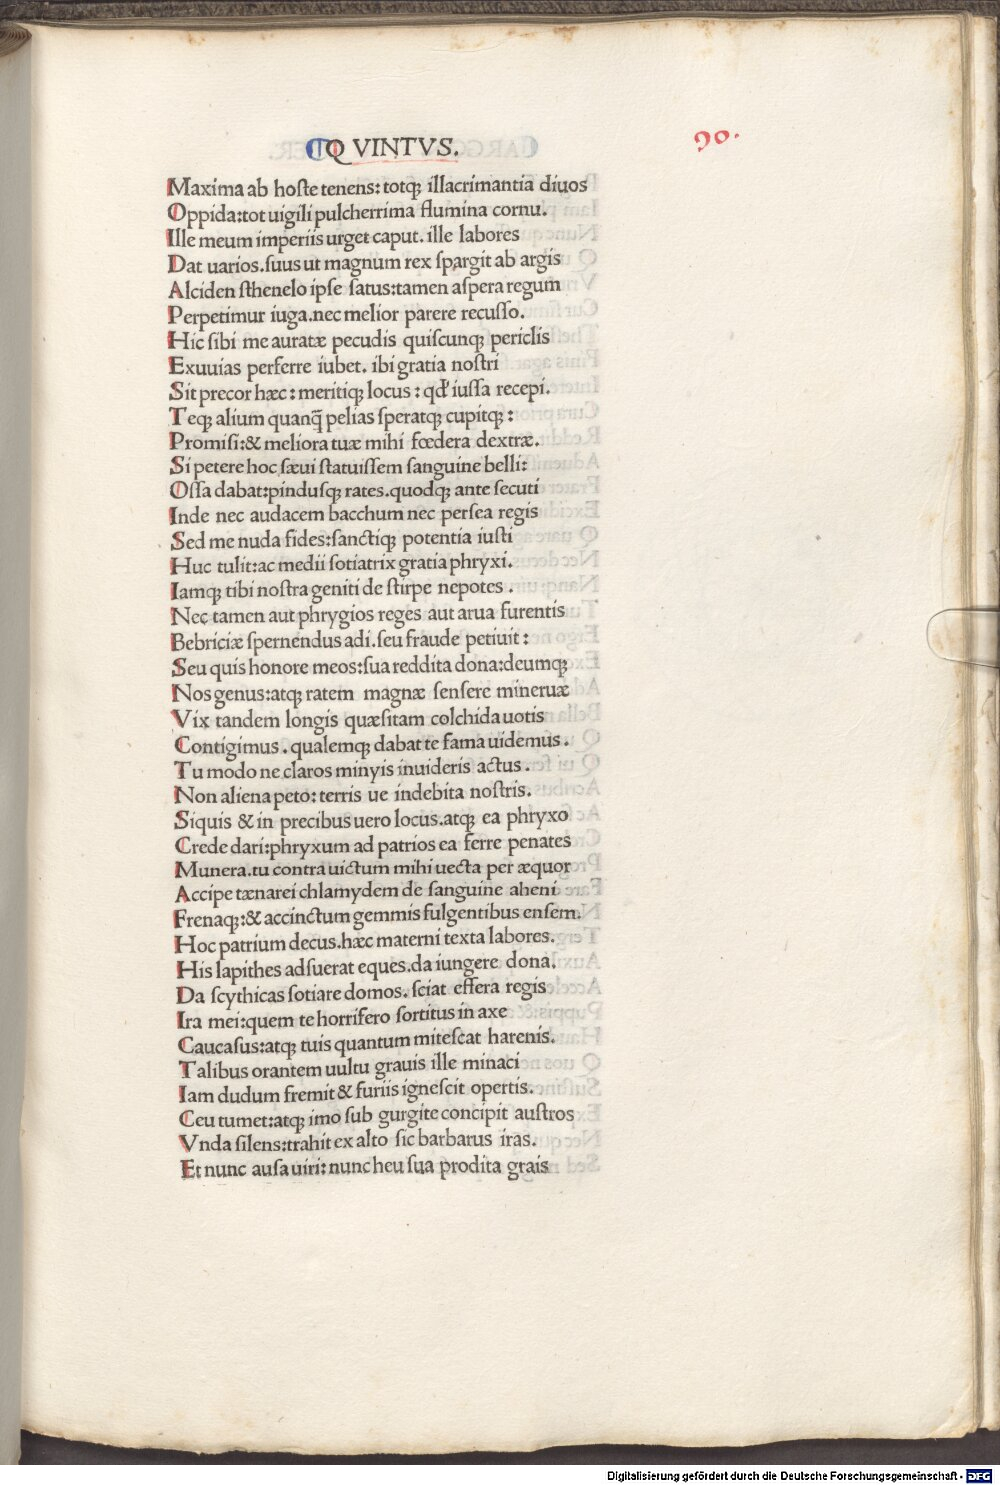 QVINTVS.
90.
Maxima ab hoſte tenens: totqꝫ illacrimantia diuos
Oppida: tot uigili pulcherrima flumina cornu.
Ille meum imperiis urget caput. ille labores
Dat uarios. ſuus ut magnum rex ſpargit ab argis
Alciden ſthenelo ipſe ſatus: tamen aſpera regum
Perpetimur iuga. nec melior parere recuſſo.
Hic ſibi me auratæ pecudis quiſcunqꝫ periclis
Exuuias perferre iubet. ibi gratia noſtri
Sit precor hæc: meritiqꝫ locus: qđ iuſſa recepi.
Teqꝫ alium quanq̃ pelias ſperatqꝫ cupitqꝫ:
Promiſi: & meliora tuæ mihi fœdera dextræ.
Si petere hoc ſæui ſtatuiſſem ſanguine belli:
Oſſa dabat: pinduſqꝫ rates. quodqꝫ ante ſecuti
Inde nec audacem bacchum nec perſea regis
Sed me nuda fides: ſanctiqꝫ potentia iuſti
Huc tulit: ac medii ſotiatrix gratia phryxi.
Iamqꝫ tibi noſtra geniti de ſtirpe nepotes.
Nec tamen aut phrygios reges aut arua furentis
Bebriciæ ſpernendus adi. ſeu fraude petiuit:
Seu quis honore meos: ſua reddita dona: deumqꝫ
Nos genus: atqꝫ ratem magnæ ſenſere mineruæ
Vix tandem longis quæſitam colchida uotis
Contigimus. qualemqꝫ dabat te fama uidemus.
Tu modo ne claros minyis inuideris actus.
Non aliena peto: terris ue indebita noſtris.
Siquis & in precibus uero locus. atqꝫ ea phryxo
Crede dari: phryxum ad patrios ea ferre penates
Munera. tu contra uictum mihi uecta per æquor
Accipe tænarei chlamydem de ſanguine aheni
Frenaqꝫ: & accinctum gemmis fulgentibus enſem.
Hoc patrium decus. hæc materni texta labores.
His lapithes adſuerat eques. da iungere dona.
Da ſcythicas ſotiare domos. ſciat effera regis
Ira mei: quem te horrifero ſortitus in axe
Caucaſus: atqꝫ tuis quantum miteſcat harenis.
Talibus orantem uultu grauis ille minaci
Iam dudum fremit & furiis igneſcit opertis.
Ceu tumet: atqꝫ imo ſub gurgite concipit auſtros
Vnda ſilens: trahit ex alto ſic barbarus iras.
Et nunc auſa uiri: nunc heu ſua prodita grais
Digitalisierung gefördert durch die Deutsche Forschungsgemeinschaft - DFG